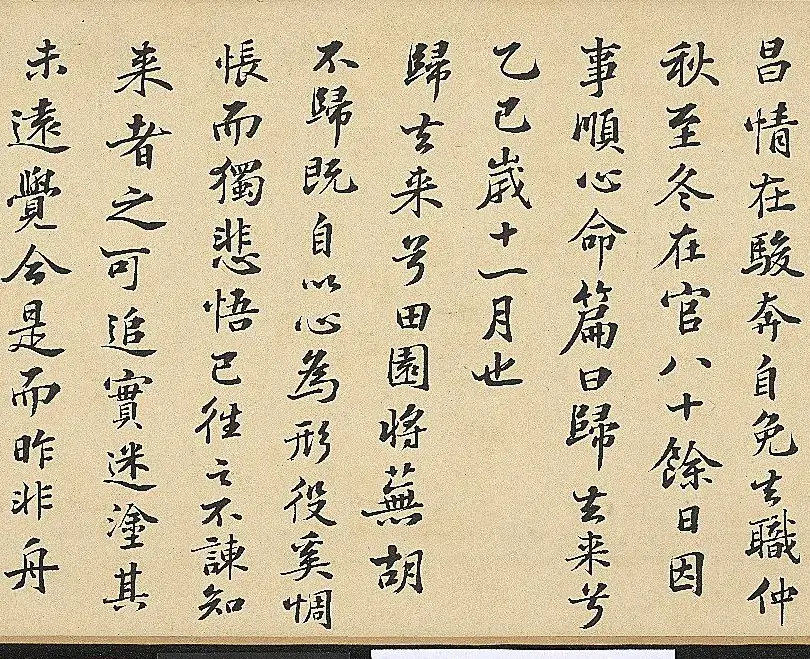 昌情在駿奔自免去職仲
秋至冬在官八十餘日因
事順心命篇曰歸去来兮
乙巳歳十一月也
歸去来兮田園将蕪胡
不歸既自以心為形役奚惆
悵而獨悲悟已往之不諫知
来者之可追實迷塗其
未遠覺今是而昨非舟